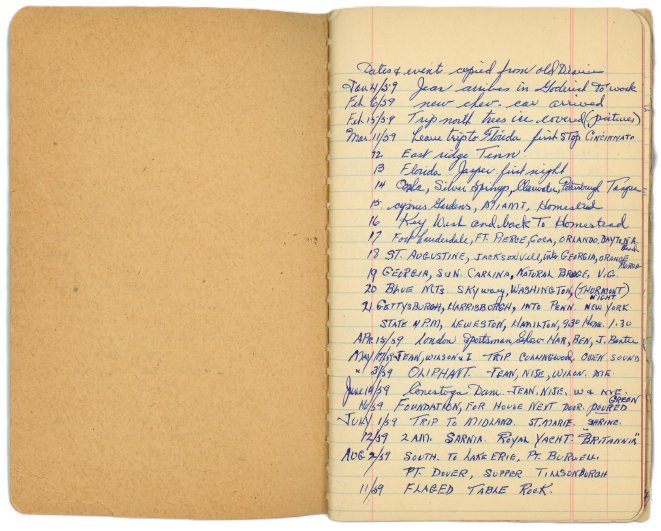 Dates & events copied from old Diaries
Jan 4/59 Jean arrives in Goderich to work
Feb 6/59 new chev. car arrived
Feb 15/59 Trip north trees ice covered (pictures)
Mar 11/59 Leave trip to Florida first stop Cincinnato
12 East ridge Tenn.
13 Florida Jasper first night
14 Ocala, Silver Springs, Clearwater, Petersburgh Tampa
15 cyprus Gardens, MIAMI, Homestead
16 Key West and back To Homestead
17 Fort Lauderdale, FT. PIERCE, COCA, ORLANDO, DAYTONA Beach
18 ST. AUGUSTINE, JACKSONVILL, into GEORGIA,
19 GEORGIA, SUN. CARLINA, NATURAL BRIDGE, V.G.
20 BLUE MTS. SKYway, WASHINGTON, (THURMONT) NIGHT
21 GETTYSBURGH, HARRISBURGH, INTO PENN. NEW YORK
STATE 4 P.M, LEWESTON, HAMILTON, 930 HOME. 1.30
APR. 15/59 London Sportsman Show HAR, BEN, J. Baxter
MAY 17/59 JEAN, WILSON & I TRIP COLLINGWOOD OWEN SOUND
" 3/59 OLIPHANT - JEAN, NISE, WILSON.
June 14/59 Conestoga Dam - JEAN, NISE. W &
16/59 FOUNDATION, FOR HOUSE NEXT DOOR. POURED GREEN
JULY 1/59 TRIP TO MIDLAND. ST. MARIE. SHRINE.
12/59 2 AM. SARNIA ROYAL YACHT - "BRITANNIA"
AUG 2/59 SOUTH. TO LAKE ERIE, PT. BURWELL
PT. DOVER, SUPPER TILLSONBURGH
11/59 FLAGED TABLE ROCK.